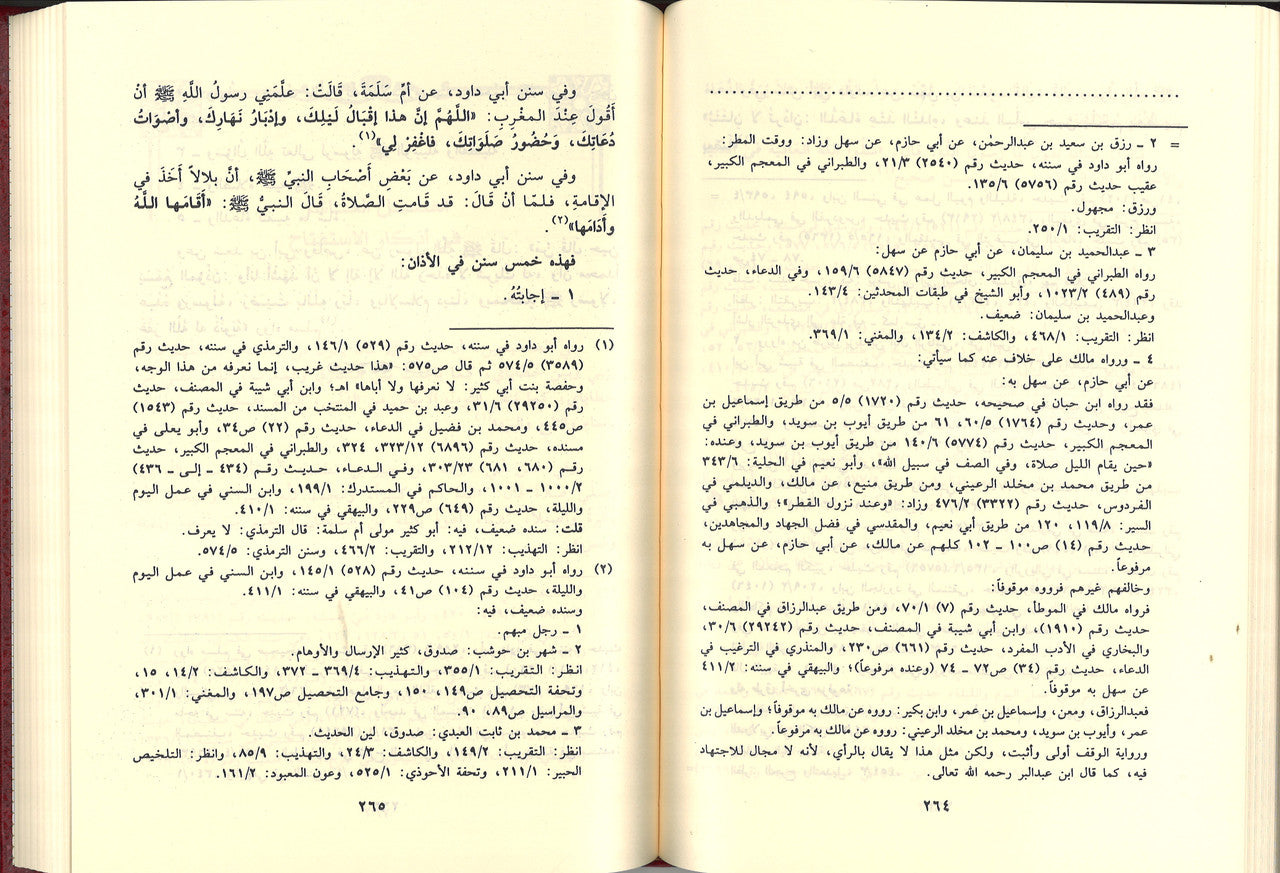 ..........................................................................
= ٢ ـ رزق بن سعيد بن عبدالرحمٰن، عن أبي حازم، عن سهل وزاد: ووقت المطر:
رواه أبو داود في سننه، حديث رقم (٢٥٤٠) ٢١/٣، والطبراني في المعجم الكبير،
عقيب حديث رقم (٥٧٥٦) ١٣٥/٦.
ورزق: مجهول.
انظر: التقريب: ٢٥٠/١.
٣ ـ عبدالحميد بن سليمان، عن أبي حازم عن سهل:
رواه الطبراني في المعجم الكبير، حديث رقم (٥٨٤٧) ١٥٩/٦، وفي الدعاء، حديث
رقم (٤٨٩) ١٠٢٣/٢، وأبو الشيخ في طبقات المحدثين: ١٤٣/٤.
وعبدالحميد بن سليمان: ضعيف.
انظر: التقريب: ٤٦٨/١، والكاشف: ١٣٤/٢، والمغني: ٣٦٩/١.
٤ ـ ورواه مالك على خلاف عنه كما سيأتي:
عن أبي حازم، عن سهل به:
فقد رواه ابن حبان في صحيحه، حديث رقم (١٧٢٠) ٥/٥ من طريق إسماعيل بن
عمر، وحديث رقم (١٧٦٤) ٦٠/٥، ٦١ من طريق أيوب بن سويد، والطبراني في
المعجم الكبير، حديث رقم (٥٧٧٤) ١٤٠/٦ من طريق أيوب بن سويد، وعنده:
«حين يقام الليل صلاة، وفي الصف في سبيل الله»، وأبو نعيم في الحلية: ٣٤٣/٦
من طريق محمد بن مخلد الرعيني، ومن طريق منيع، عن مالك، والديلمي في
الفردوس، حديث رقم (٣٣٢٢) ٤٧٦/٢ وزاد: «وعند نزول القطر»؛ والذهبي في
السير: ١١٩/٨، ١٢٠ من طريق أبي نعيم، والمقدسي في فضل الجهاد والمجاهدين،
حديث رقم (١٤) ص١٠٠ ـ ١٠٢ كلهم عن مالك، عن أبي حازم، عن سهل به
مرفوعاً.
وخالفهم غيرهم فرووه موقوفاً:
فرواه مالك في الموطأ، حديث رقم (٧) ٧٠/١، ومن طريق عبدالرزاق في المصنف،
حديث رقم (١٩١٠)، وابن أبي شيبة في المصنف، حديث رقم (٢٩٢٤٢) ٣٠/٦،
والبخاري في الأدب المفرد، حديث رقم (٦٦١) ص٢٣٠، والمنذري في الترغيب في
الدعاء، حديث رقم (٣٤) ص٧٢ ـ ٧٤ (وعنده مرفوعاً)؛ والبيهقي في سننه: ٤١١/٢
عن سهل به موقوفاً.
فعبدالرزاق، ومعن، وإسماعيل بن عمر، وابن بكير: رووه عن مالك به موقوفاً؛ وإسماعيل بن
عمر، وأيوب بن سويد، ومحمد بن مخلد الرعيني: رووه عن مالك به مرفوعاً.
ورواية الوقف أولى وأثبت، ولكن مثل هذا لا يقال بالرأي، لأنه لا مجال للاجتهاد
فيه، كما قال ابن عبدالبر رحمه الله تعالى.
٢٦٤
وفي سنن أبي داود، عن أمِّ سَلَمَةَ، قَالَتْ: علَّمَنِي رسولُ اللَّهِ ﷺ أنْ
أَقُولَ عِنْدَ المغْرِبِ: «اللَّهُمَّ إنَّ هذا إقْبَالُ لَيْلِكَ، وإدْبَارُ نَهَارِكَ، وأصْوَاتُ
دُعَاتِكَ، وَحُضُورُ صَلَوَاتِكَ، فاغْفِرْ لِي»(١).
وفي سنن أبي داود، عن بَعْضِ أصْحَابِ النبيِّ ﷺ، أنَّ بلالاً أَخَذَ في
الإقامةِ، فلمّا أنْ قَالَ: قد قامتِ الصَّلاةُ، قَالَ النبيُّ ﷺ: «أَقَامَها اللَّهُ
وأَدَامَها»(٢).
فهذه خمس سنن في الأذان:
١ ـ إجابتُهُ.
(١) رواه أبو داود في سننه، حديث رقم (٥٢٩) ١٤٦/١، والترمذي في سننه، حديث رقم
(٣٥٨٩) ٥٧٤/٥ ثم قال ص٥٧٥: «هذا حديث غريب، إنما نعرفه من هذا الوجه،
وحفصة بنت أبي كثير: لا نعرفها ولا أباها» اهـ؛ وابن أبي شيبة في المصنف، حديث
رقم (٢٩٢٥٠) ٣١/٦، وعبد بن حميد في المنتخب من المسند، حديث رقم (١٥٤٣)
ص٤٤٥، ومحمد بن فضيل في الدعاء، حديث رقم (٢٢) ص٣٤، وأبو يعلى في
مسنده، حديث رقم (٦٨٩٦) ٣٢٣/١٢، ٣٢٤، والطبراني في المعجم الكبير، حديث
رقـم (٦٨٠، ٦٨١) ٣٠٣/٢٣، وفـي الـدعـاء، حـديـث رقـم (٤٣٤ ـ إلـى ـ ٤٣٦)
١٠٠٠/٢ ـ ١٠٠١، والحاكم في المستدرك: ١٩٩/١، وابن السني في عمل اليوم
والليلة، حديث رقم (٦٤٩) ص٢٢٩، والبيهقي في سننه: ٤١٠/١.
قلت: سنده ضعيف، فيه: أبو كثير مولى أم سلمة: قال الترمذي: لا يعرف.
انظر: التهذيب: ٢١٢/١٢، والتقريب: ٤٦٦/٢، وسنن الترمذي: ٥٧٤/٥.
(٢) رواه أبو داود في سننه، حديث رقم (٥٢٨) ١٤٥/١، وابن السني في عمل اليوم
والليلة، حديث رقم (١٠٤) ص٤١، والبيهقي في سننه: ٤١١/١.
وسنده ضعيف، فيه:
١ ـ رجل مبهم.
٢ ـ شهر بن حوشب: صدوق، كثير الإرسال والأوهام.
انظر: التقريب: ٣٥٥/١، والتهذيب: ٣٦٩/٤ ـ ٣٧٢، والكاشف: ١٤/٢، ١٥،
وتحفة التحصيل ص١٤٩، ١٥٠، وجامع التحصيل ص١٩٧، والمغني: ٣٠١/١،
والمراسيل ص٨٩، ٩٠.
٣ ـ محمد بن ثابت العبدي: صدوق، لين الحديث.
انظر: التقريب: ١٤٩/٢، والكاشف: ٢٤/٣، والتهذيب: ٨٥/٩، وانظر: التلخيص
الحبير: ٢١١/١، وتحفة الأحوذي: ٥٢٥/١، وعون المعبود: ١٦١/٢.
٢٦٥